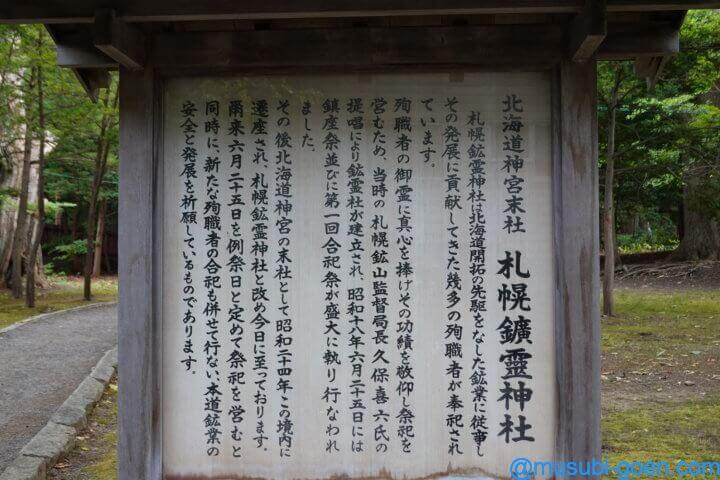 北海道神宮末社 札幌鑛霊神社
札幌鉱霊神社は北海道開拓の先駆をなした鉱業に従事し
その発展に貢献してきた幾多の殉職者が奉祀され
ています。
殉職者の御霊に真心を捧げその功績を敬仰し祭祀を
営むため、当時の札幌鉱山監督局長久保喜六氏の
提唱により鉱霊社が建立され、昭和十八年六月二十五日には
鎮座祭並びに第一回合祀祭が盛大に執り行なわれ
ました。
その後北海道神宮の末社として昭和二十四年この境内に
遷座され、札幌鉱霊神社と改め今日に至っております。
爾来六月二十五日を例祭日と定めて祭祀を営むと
同時に、新たな殉職者の合祀も併せて行ない、本道鉱業の
安全と発展を祈願しているものであります。
@musubi-goen.com